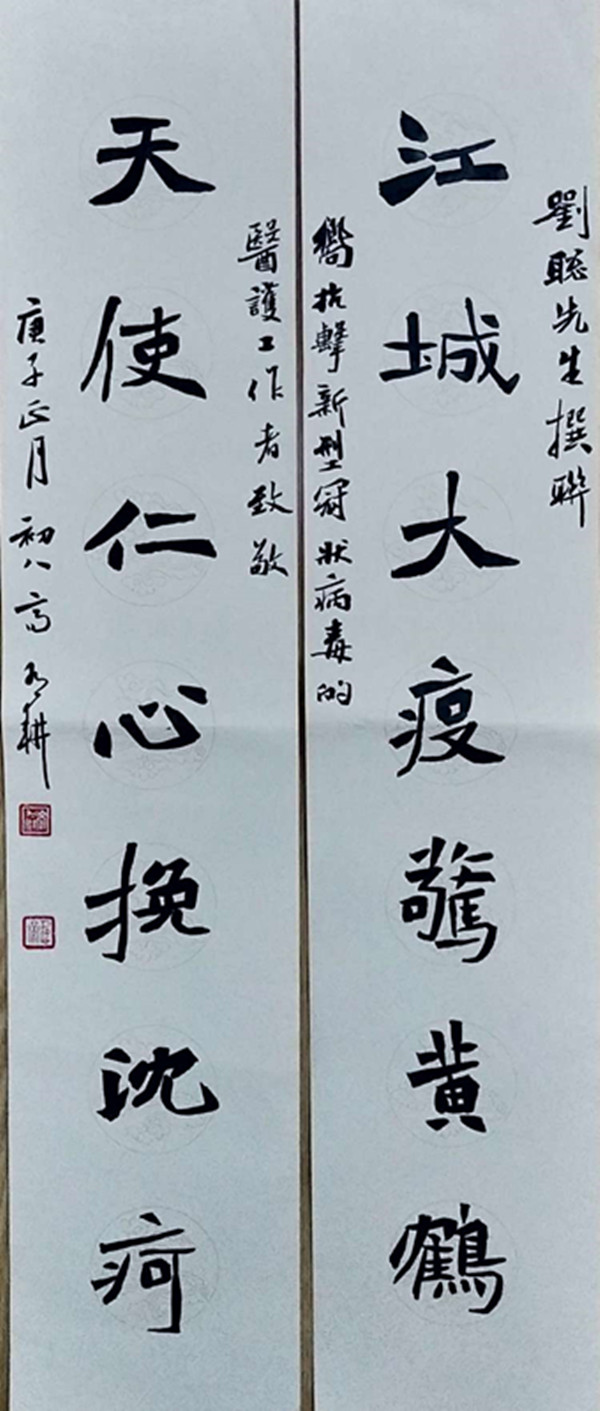 劉聰先生撰聯
江城大疫驚黃鶴
嚮抗擊新型冠狀病毒的
醫護工作者致敬
天使仁心挽沈疴
庚子正月初八高耕